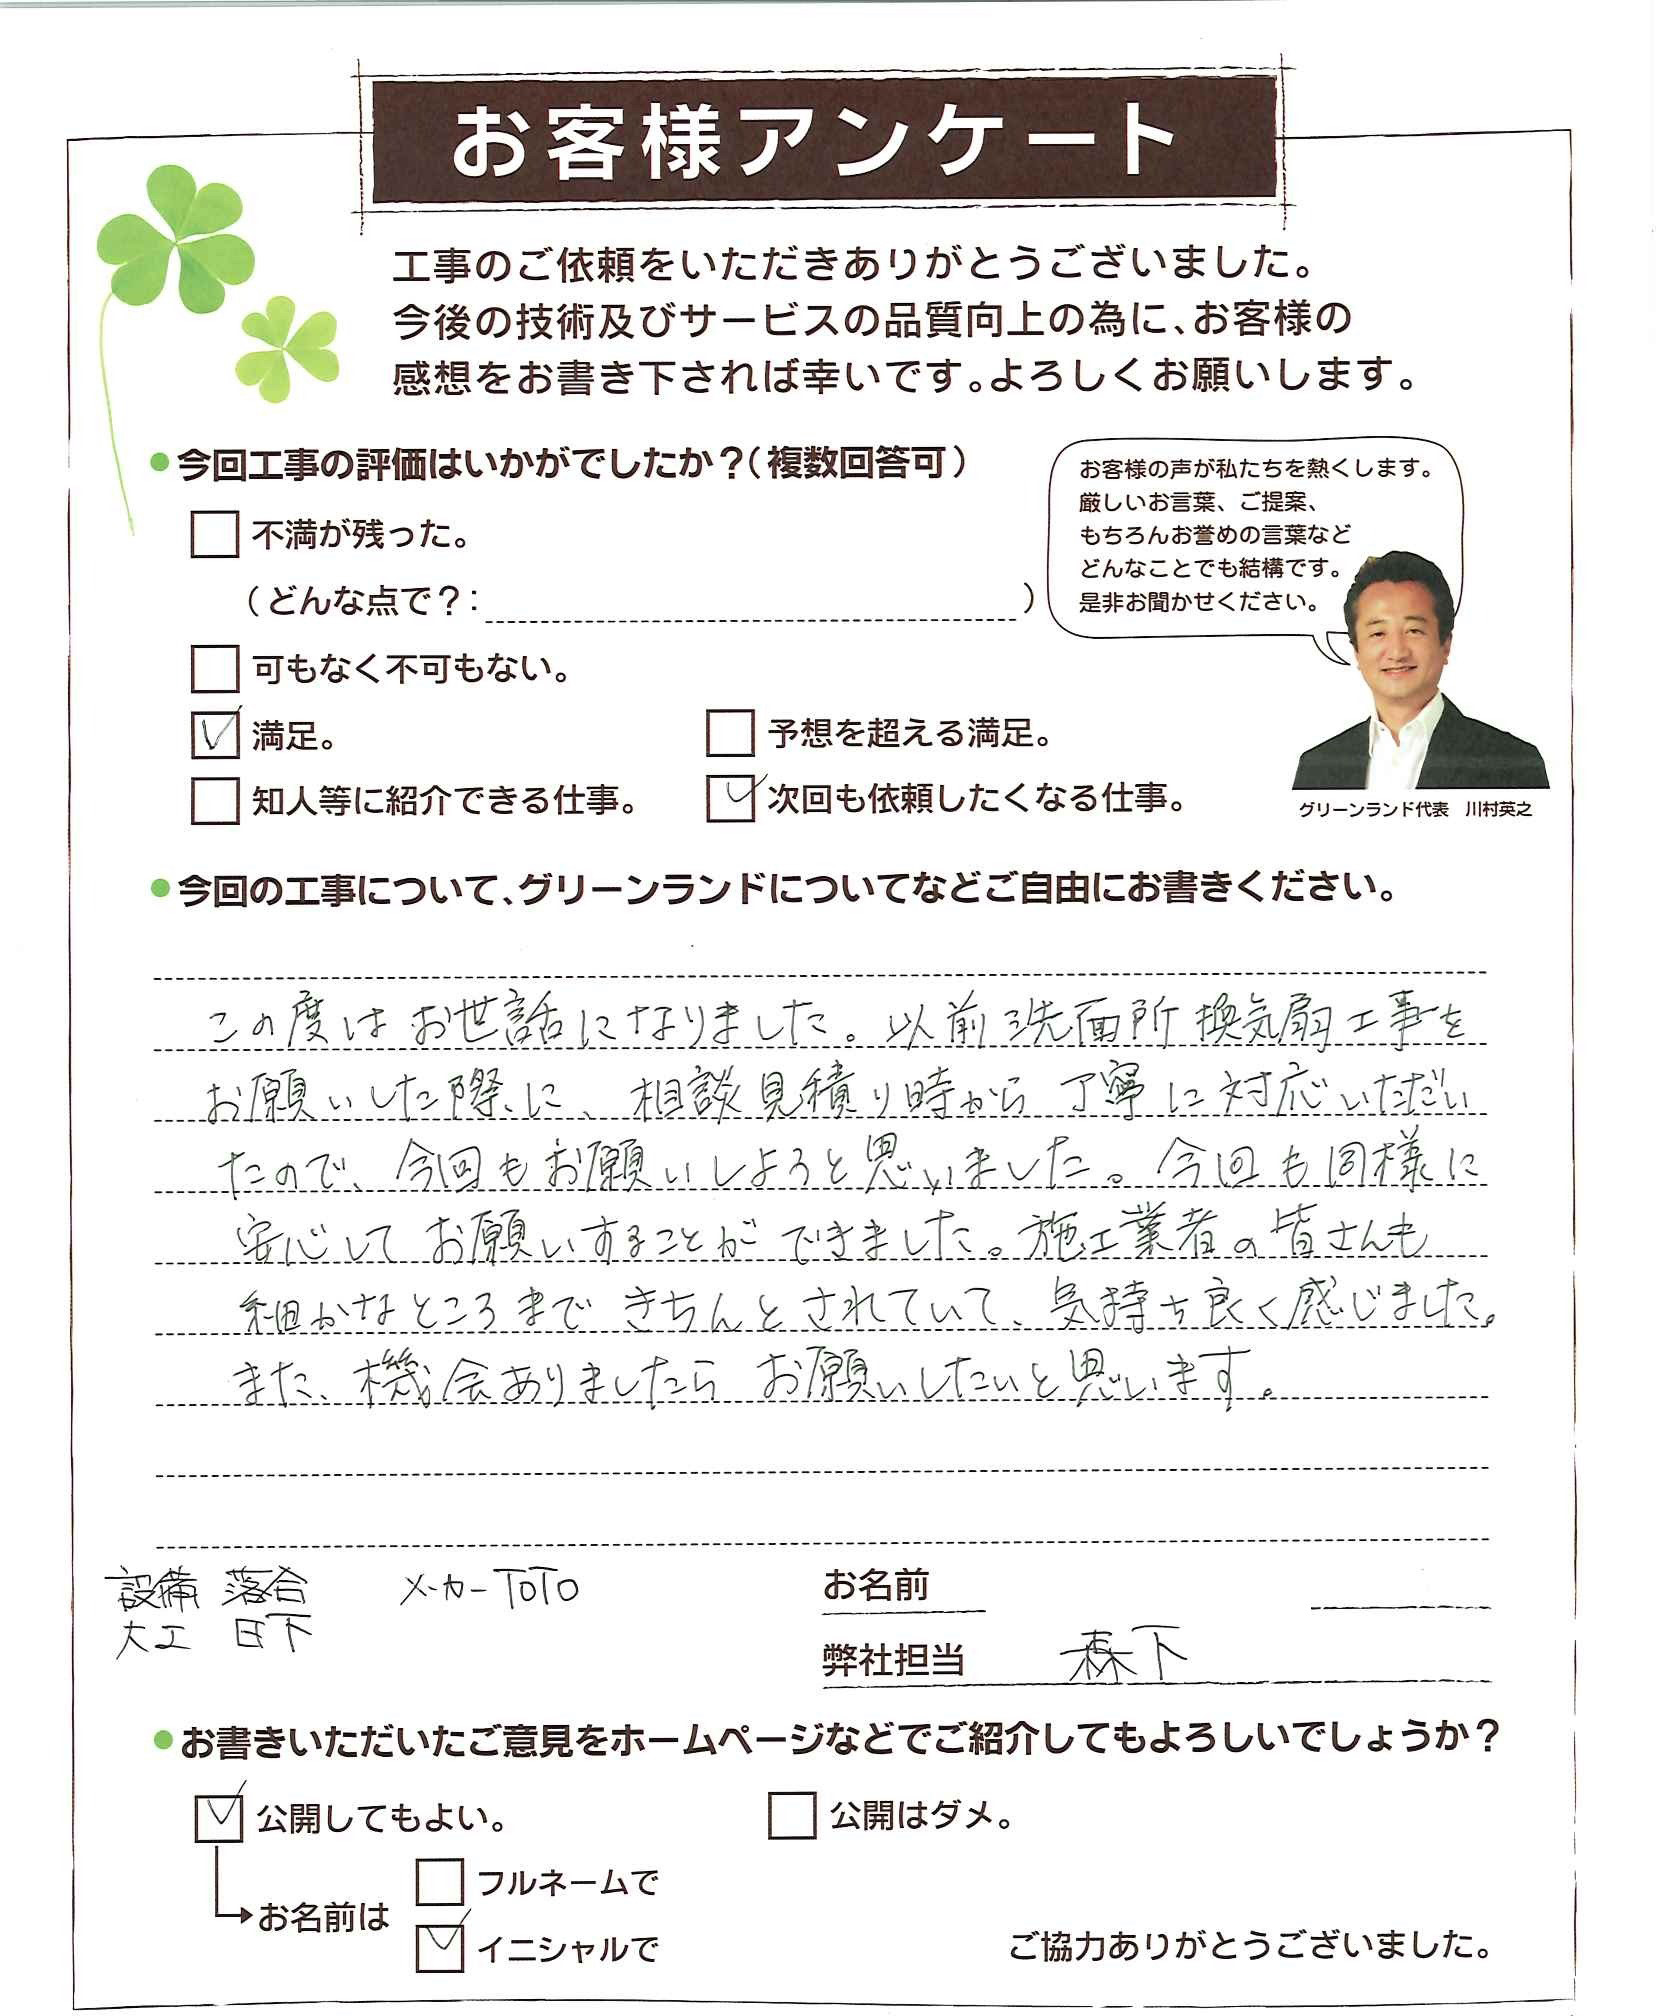 お客様アンケート
工事のご依頼をいただきありがとうございました。
今後の技術及びサービスの品質向上の為に、お客様の
感想をお書き下されば幸いです。よろしくお願いします。
●今回工事の評価はいかがでしたか？（複数回答可）
不満が残った。
（どんな点で？：　）
可もなく不可もない。
満足。
予想を超える満足。
知人等に紹介できる仕事。
次回も依頼したくなる仕事。
お客様の声が私たちを熱くします。
厳しいお言葉、ご提案、
もちろんお誉めの言葉など
どんなことでも結構です。
是非お聞かせください。
グリーンランド代表　川村英之
●今回の工事について、グリーンランドについてなどご自由にお書きください。
この度はお世話になりました。以前洗面所換気扇工事を
お願いした際に、相談見積り時から丁寧に対応いただい
たので、今回もお願いしようと思いました。今回も同様に
安心してお願いすることができました。施工業者の皆さんも
細かなところまできちんとされていて、気持ち良く感じました。
また、機会ありましたらお願いしたいと思います。
設備 落合　メーカーTOTO
大工 日下
お名前
弊社担当　森下
●お書きいただいたご意見をホームページなどでご紹介してもよろしいでしょうか？
公開してもよい。
公開はダメ。
お名前は
フルネームで
イニシャルで
ご協力ありがとうございました。